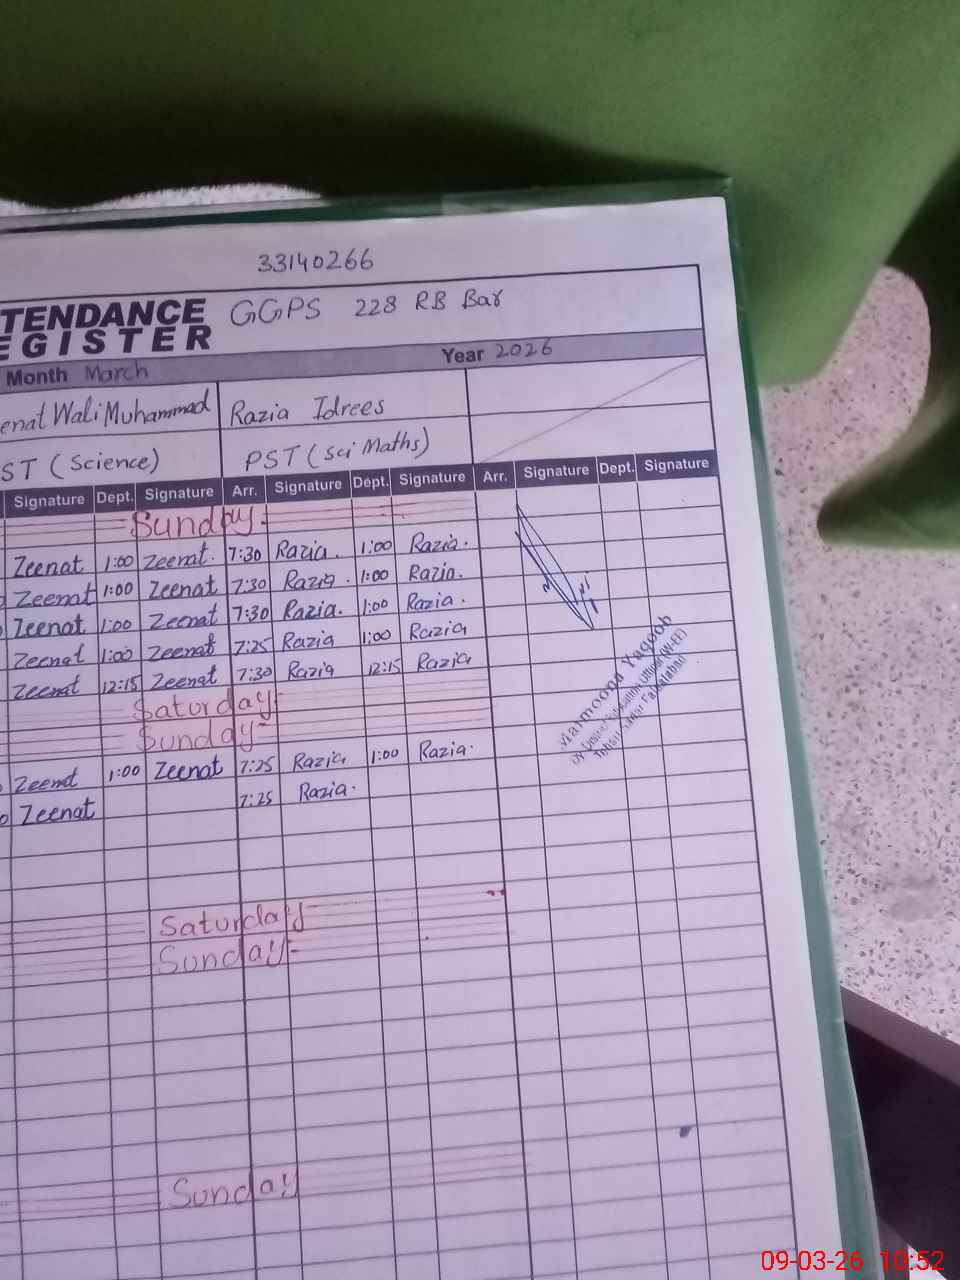 33140266
TENDANCE GGPS 228 RB Bar
EGISTER
Month March Year 2026
enat Wali Muhammad Razia Idrees
ST (Science) PST (Sci Maths)
Signature Dept. Signature Arr. Signature Dept. Signature Arr. Signature Dept. Signature
Sunday
Zeenat 1:00 Zeenat. 7:30 Razia. 1:00 Razia.
Zeenat 1:00 Zeenat 7:30 Razia. 1:00 Razia.
Zeenat 1:00 Zeenat 7:30 Razia. 1:00 Razia.
Zeenat 1:00 Zeenat 7:25 Razia 1:00 Razia
Zeenat 12:15 Zeenat 7:30 Razia 12:15 Razia
Saturday
Sunday
Zeenat 1:00 Zeenat 7:25 Razia 1:00 Razia.
Zeenat 7:25 Razia.
Saturday
Sunday
Sunday
Yaqoob
Education Officer (W-EE)
Faisalabad
09-03-26 10:52